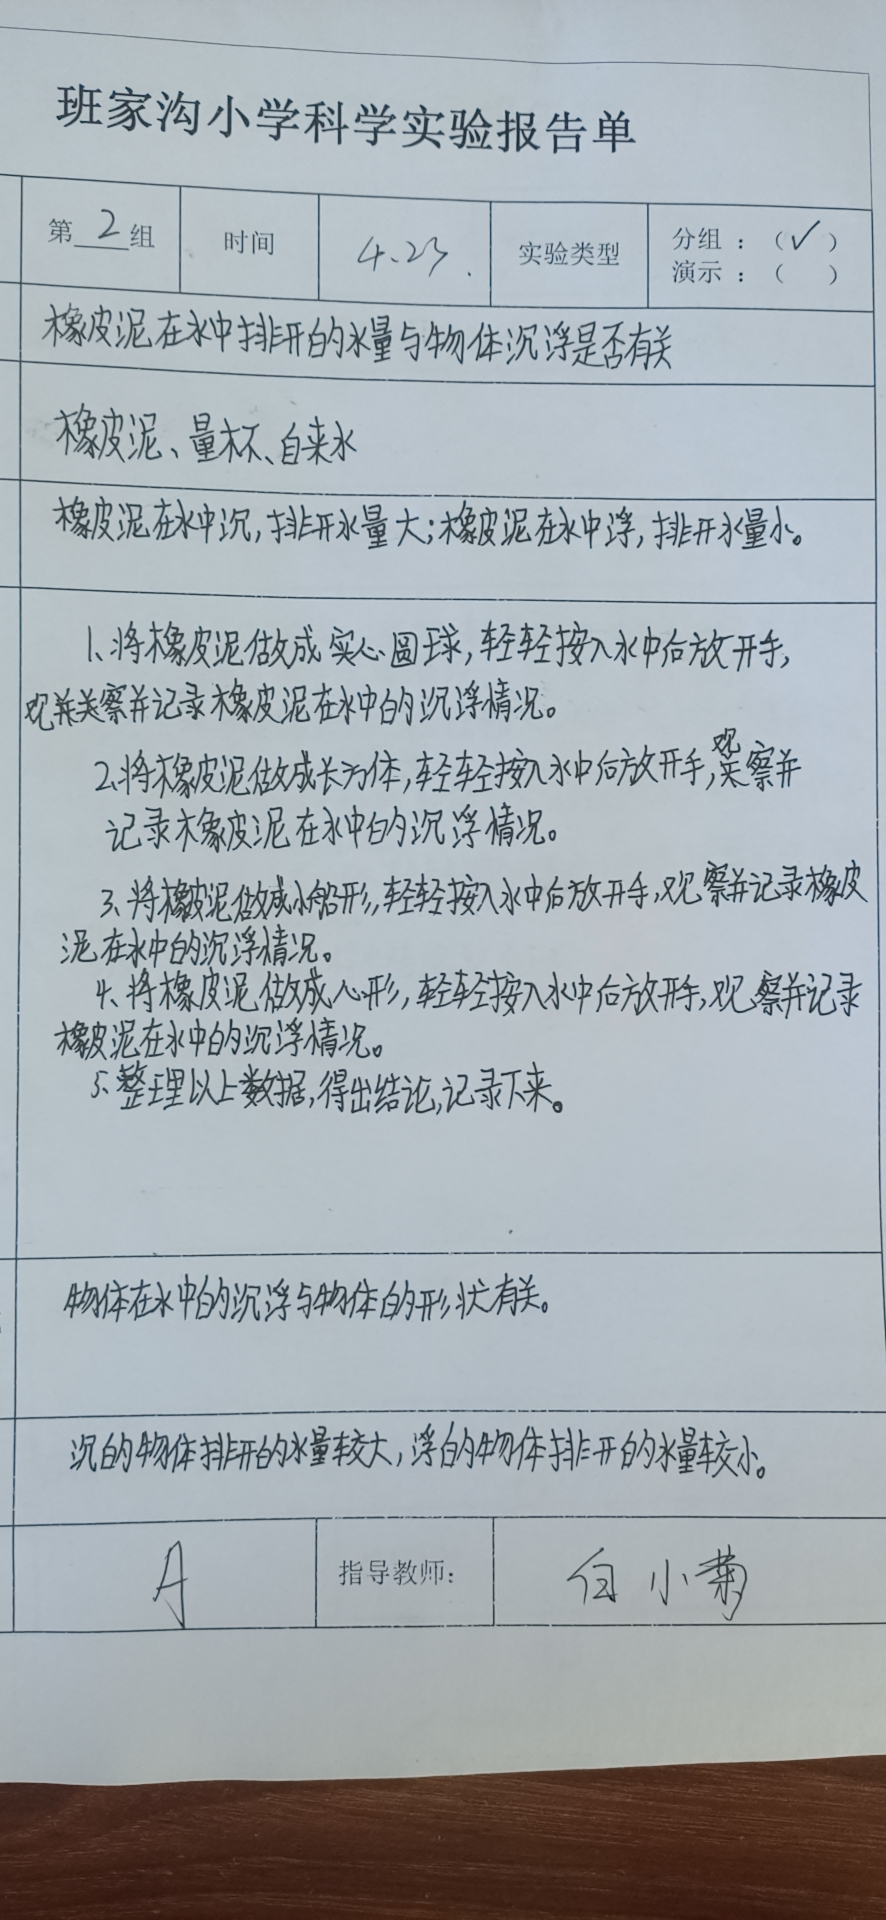 班家沟小学科学实验报告单
第2组 时间 4.23. 实验类型 分组：（✓）
演示：（ ）
橡皮泥在水中排开的水量与物体沉浮是否有关
橡皮泥、量杯、自来水
橡皮泥在水中沉，排开水量大；橡皮泥在水中浮，排开水量小。
1、将橡皮泥做成实心圆球，轻轻按入水中后放开手，
观察并记录橡皮泥在水中的沉浮情况。
2、将橡皮泥做成长方体，轻轻按入水中后放开手，观察并
记录橡皮泥在水中的沉浮情况。
3、将橡皮泥做成小船形，轻轻按入水中后放开手，观察并记录橡皮
泥在水中的沉浮情况。
4、将橡皮泥做成心形，轻轻按入水中后放开手，观察并记录
橡皮泥在水中的沉浮情况。
5、整理以上数据，得出结论，记录下来。
物体在水中的沉浮与物体的形状有关。
沉的物体排开的水量较大，浮的物体排开的水量较小。
A 指导教师： 白小菊